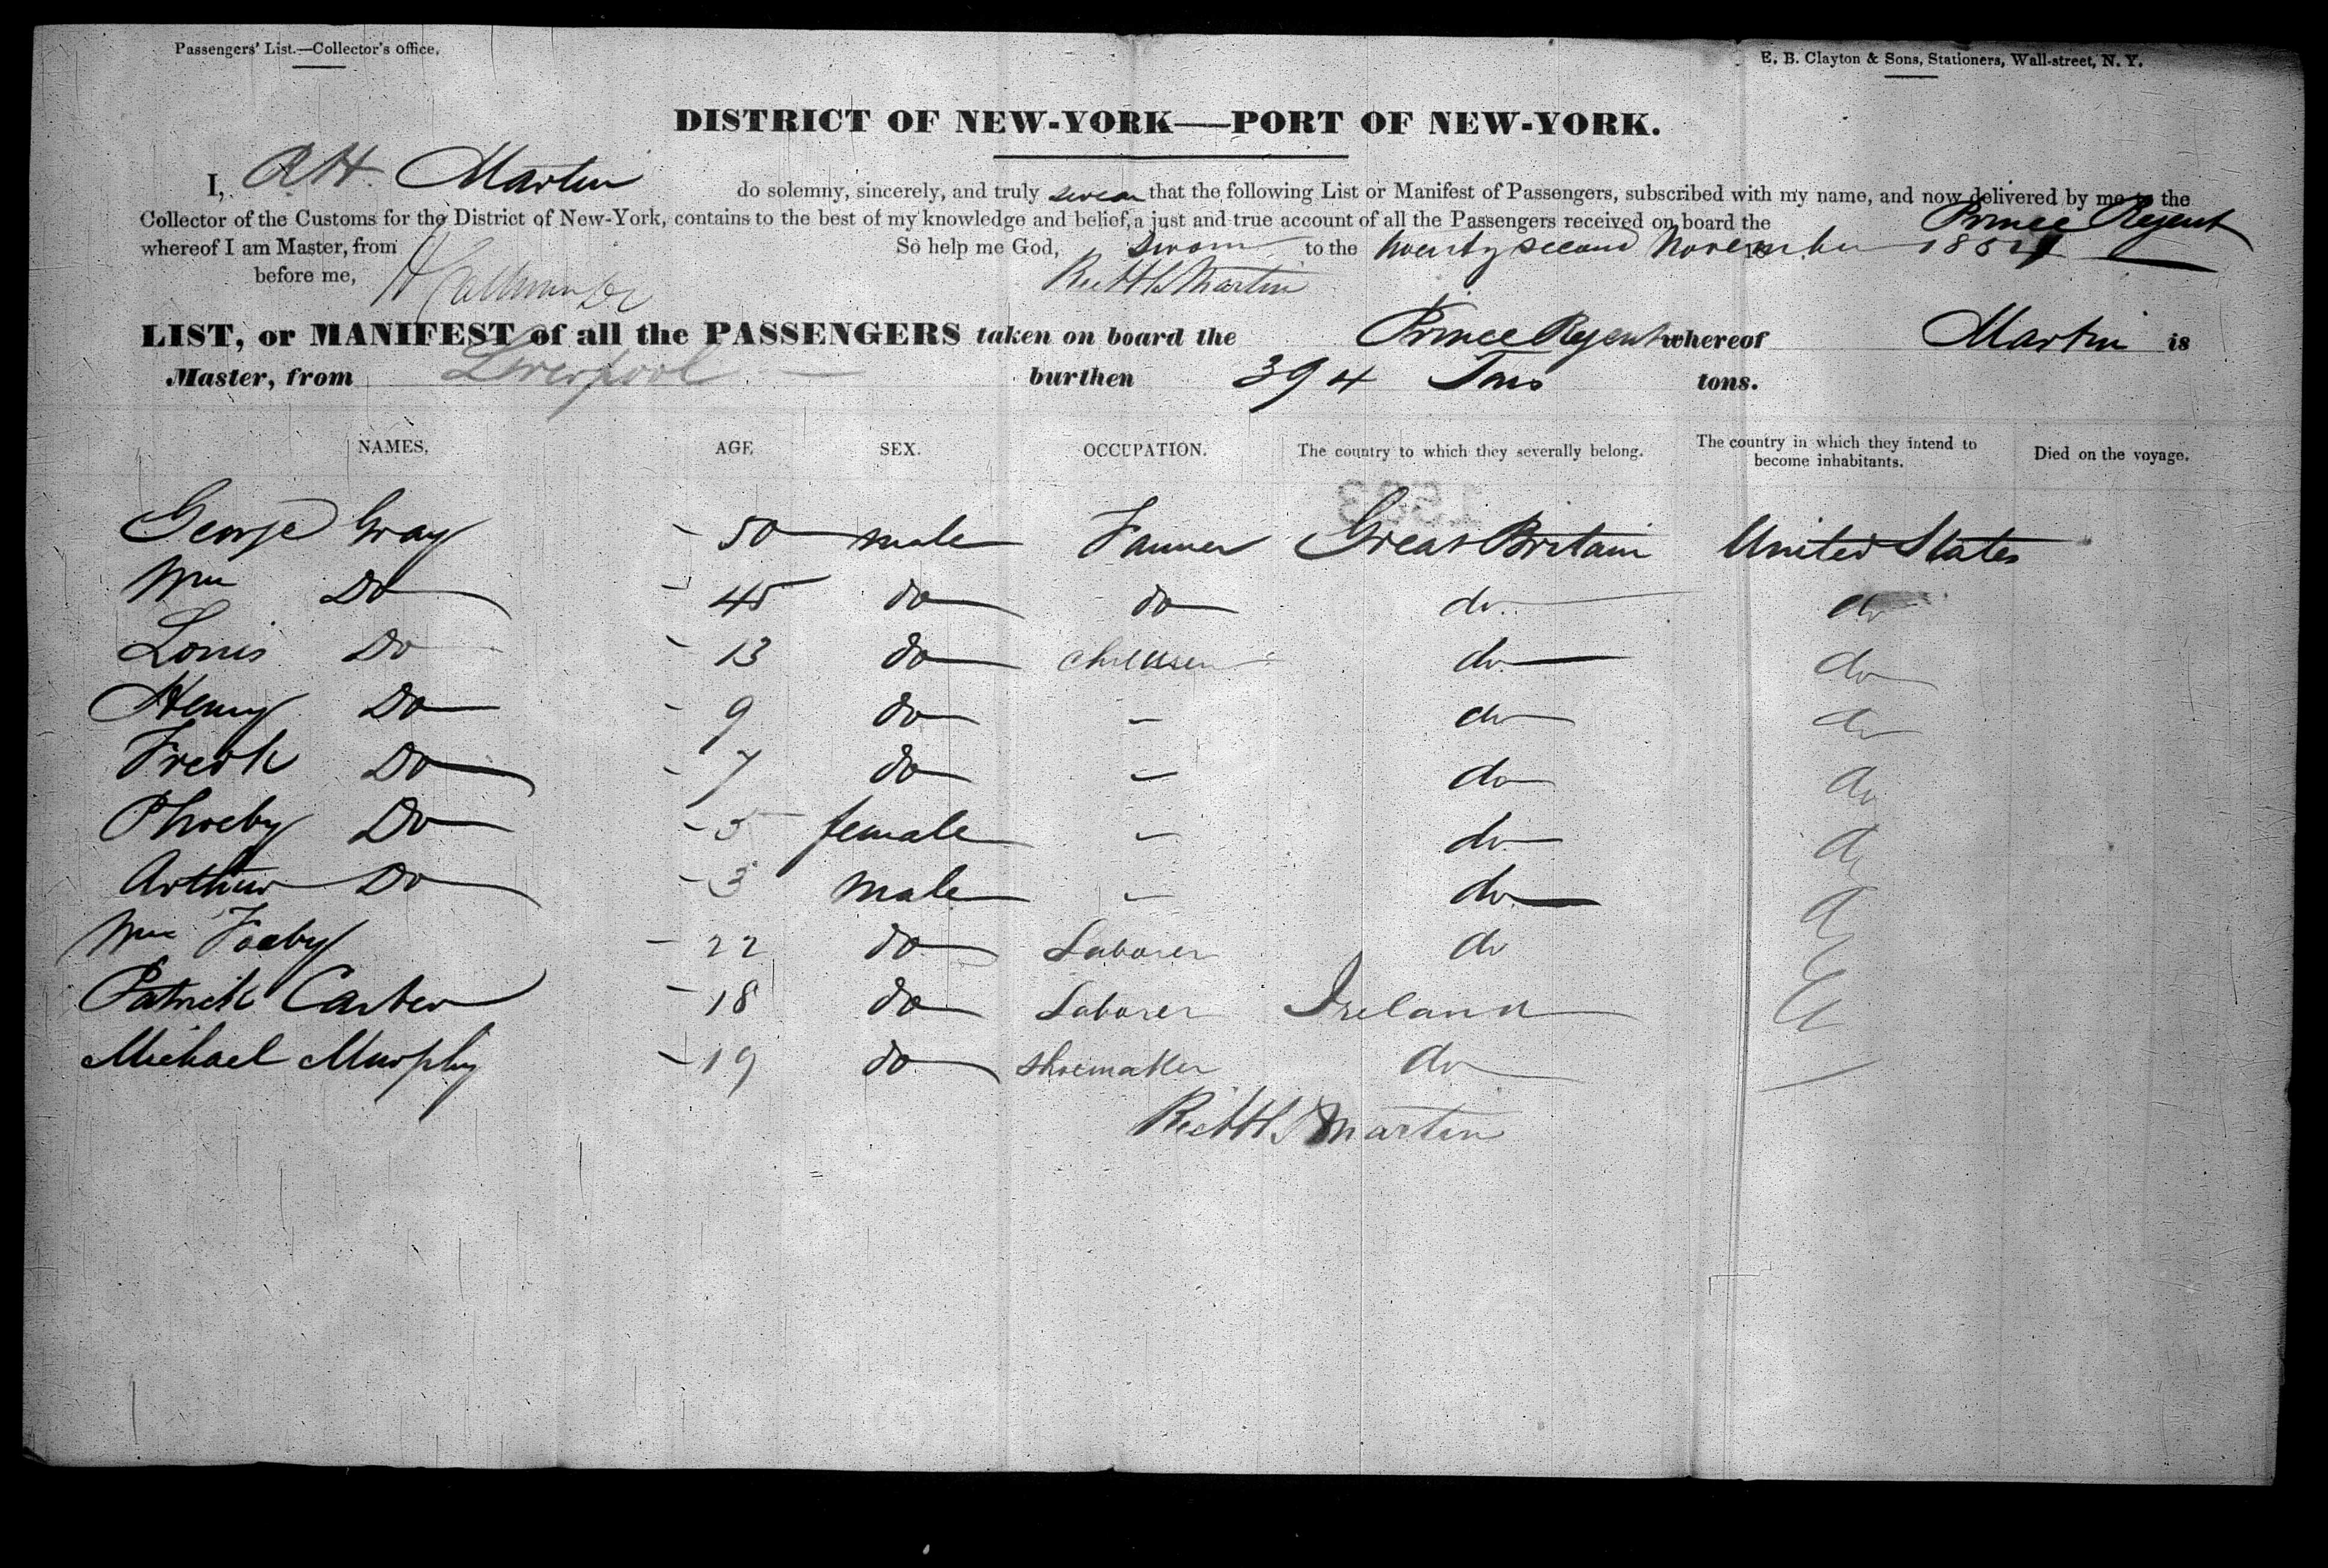 Passengers' List.—Collector's office.
E. B. Clayton & Sons, Stationers, Wall-street, N. Y.
DISTRICT OF NEW-YORK—PORT OF NEW-YORK.
I, R H. Martin do solemny, sincerely, and truly swear that the following List or Manifest of Passengers, subscribed with my name, and now delivered by me to the
Collector of the Customs for the District of New-York, contains to the best of my knowledge and belief, a just and true account of all the Passengers received on board the Prince Regent
whereof I am Master, from So help me God, Sworn to the twenty second November 1854
before me, Martin
LIST, or MANIFEST of all the PASSENGERS taken on board the Prince Regent whereof Martin is
Master, from Liverpool burthen 394 Tons tons.
NAMES. AGE. SEX. OCCUPATION. The country to which they severally belong. The country in which they intend to become inhabitants. Died on the voyage.
George Gray - 50 male Farmer Great Britain United States
Wm Do - 45 do do do do
Louis Do - 13 do children do do
Henry Do - 9 do - do do
Fredk Do - 7 do - do do
Phoeby Do - 5 female - do do
Arthur Do - 3 male - do d
Wm - 22 do Laborer do
Patrick Carter - 18 do Laborer Ireland
Michael Murphy - 19 do shoemaker do
Martin